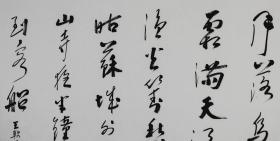 月落烏
霜滿天江
漁火對愁眠
姑蘇城外
山寺夜半鐘
到客船